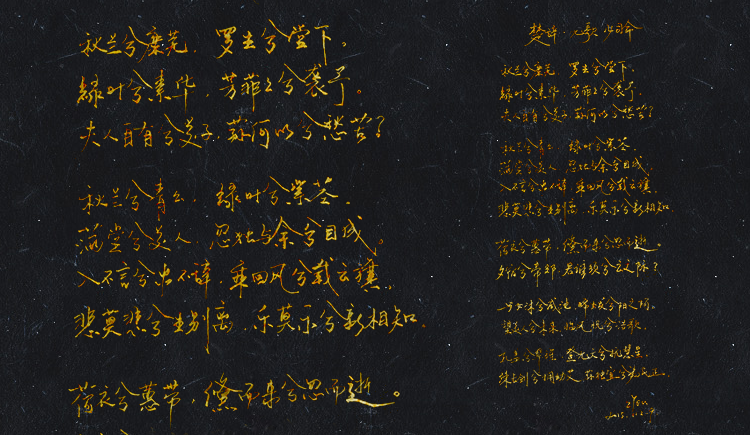 秋兰兮麋芜，罗生兮堂下。
绿叶兮素华，芳菲菲兮袭予。
夫人自有兮美子，荪何以兮愁苦？
秋兰兮青青，绿叶兮紫茎。
满堂兮美人，忽独与余兮目成。
入不言兮出不辞，乘回风兮载云旗。
悲莫悲兮生别离，乐莫乐兮新相知。
荷衣兮蕙带，儵而来兮忽而逝。
楚辞·九歌 少司命
秋兰兮麋芜，罗生兮堂下。
绿叶兮素华，芳菲菲兮袭予。
夫人自有兮美子，荪何以兮愁苦？
秋兰兮青青，绿叶兮紫茎。
满堂兮美人，忽独与余兮目成。
入不言兮出不辞，乘回风兮载云旗。
悲莫悲兮生别离，乐莫乐兮新相知。
荷衣兮蕙带，儵而来兮忽而逝。
夕宿兮帝郊，君谁须兮云之际？
与女沐兮咸池，晞女发兮阳之阿。
望美人兮未来，临风怳兮浩歌。
孔盖兮翠旍，登九天兮抚彗星。
竦长剑兮拥幼艾，荪独宜兮为民正。